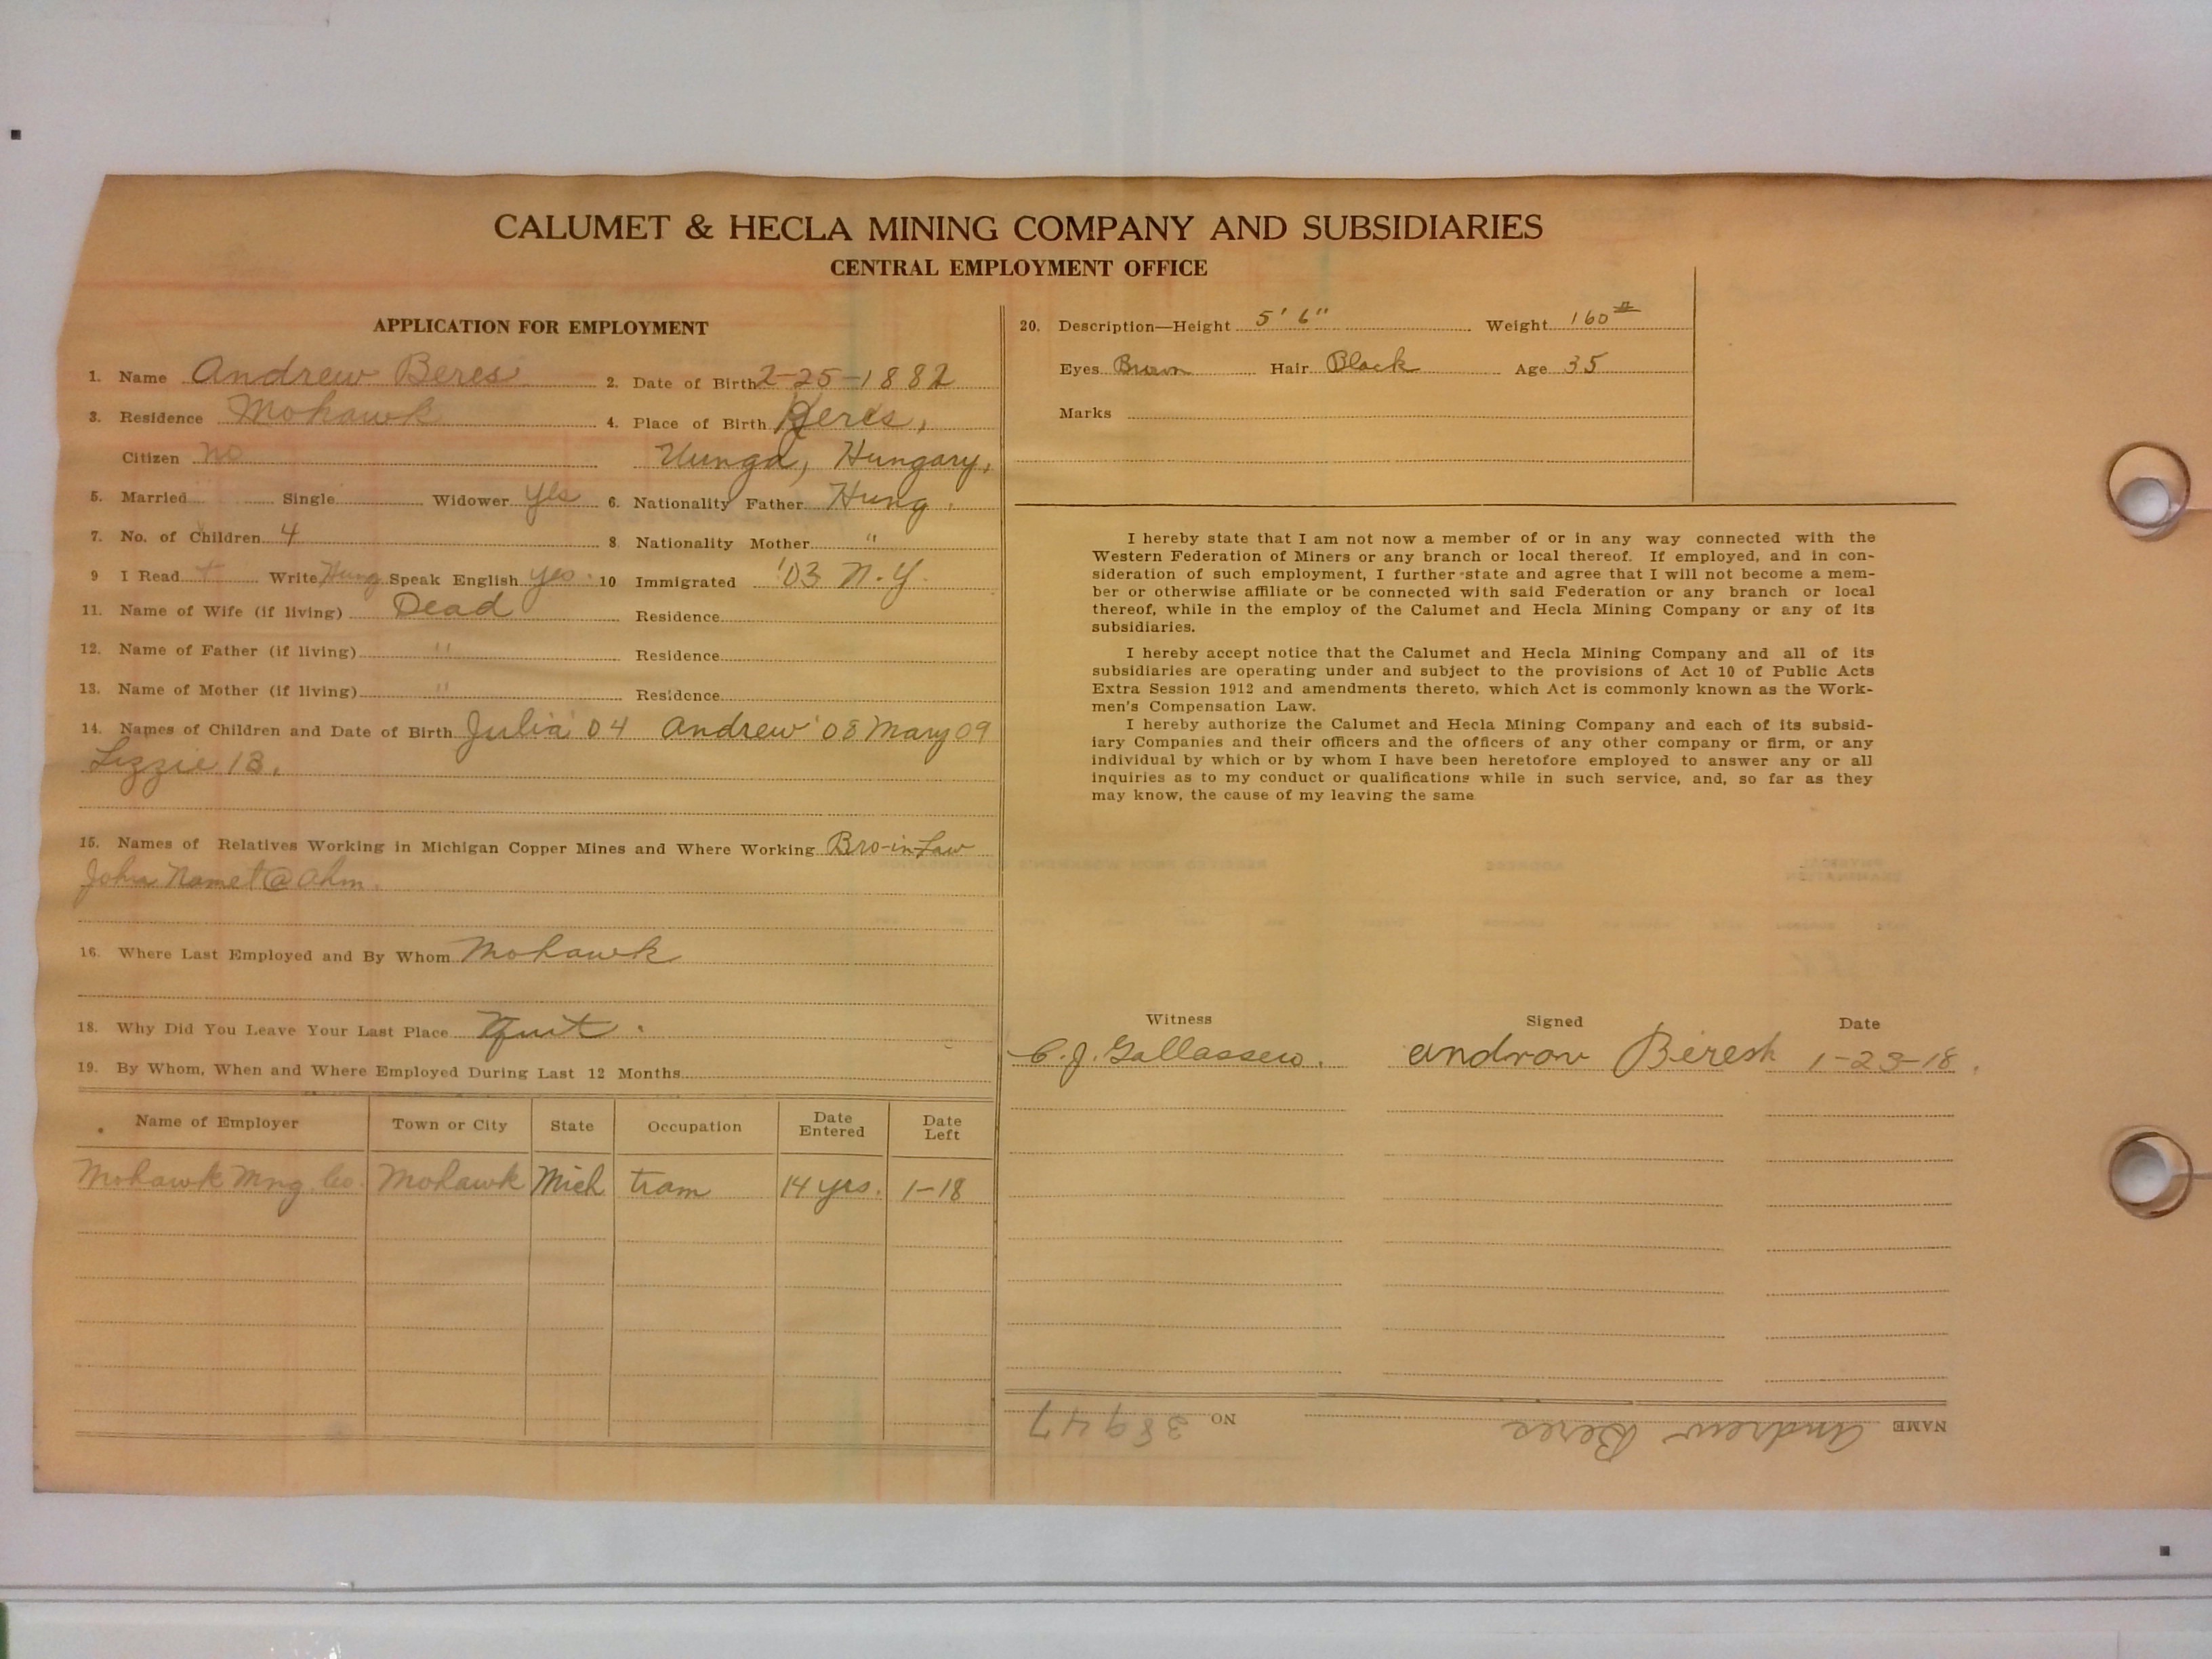 CALUMET & HECLA MINING COMPANY AND SUBSIDIARIES
CENTRAL EMPLOYMENT OFFICE
APPLICATION FOR EMPLOYMENT
1. Name Andrew Beres 2. Date of Birth 2-25-1882
3. Residence Mohawk 4. Place of Birth Beres,
Citizen no Hungary,
5. Married Single Widower yes 6. Nationality Father Hung.
7. No. of Children 4 8 Nationality Mother "
9 I Read + Write Hung Speak English yes. 10 Immigrated '03 N.Y.
11. Name of Wife (if living) Dead Residence
12. Name of Father (if living) " Residence
13. Name of Mother (if living) " Residence
14. Names of Children and Date of Birth Julia '04 Andrew '08 Mary 09
Lizzie 13.
15. Names of Relatives Working in Michigan Copper Mines and Where Working Bro-in-Law
John @ Ahm.
16. Where Last Employed and By Whom Mohawk
18. Why Did You Leave Your Last Place Quit.
19. By Whom, When and Where Employed During Last 12 Months
Name of Employer Town or City State Occupation Date Entered Date Left
Mohawk Mng. Co. Mohawk Mich tram 14 yrs. 1-18
20. Description—Height 5' 6" Weight 160#
Eyes Brown Hair Black Age 35
Marks
I hereby state that I am not now a member of or in any way connected with the
Western Federation of Miners or any branch or local thereof. If employed, and in con-
sideration of such employment, I further state and agree that I will not become a mem-
ber or otherwise affiliate or be connected with said Federation or any branch or local
thereof, while in the employ of the Calumet and Hecla Mining Company or any of its
subsidiaries.
I hereby accept notice that the Calumet and Hecla Mining Company and all of its
subsidiaries are operating under and subject to the provisions of Act 10 of Public Acts
Extra Session 1912 and amendments thereto, which Act is commonly known as the Work-
men's Compensation Law.
I hereby authorize the Calumet and Hecla Mining Company and each of its subsid-
iary Companies and their officers and the officers of any other company or firm, or any
individual by which or by whom I have been heretofore employed to answer any or all
inquiries as to my conduct or qualifications while in such service, and, so far as they
may know, the cause of my leaving the same
Witness Signed Date
C. J. androv Beresh 1-23-18.
NAME Andrew Beres NO 38947